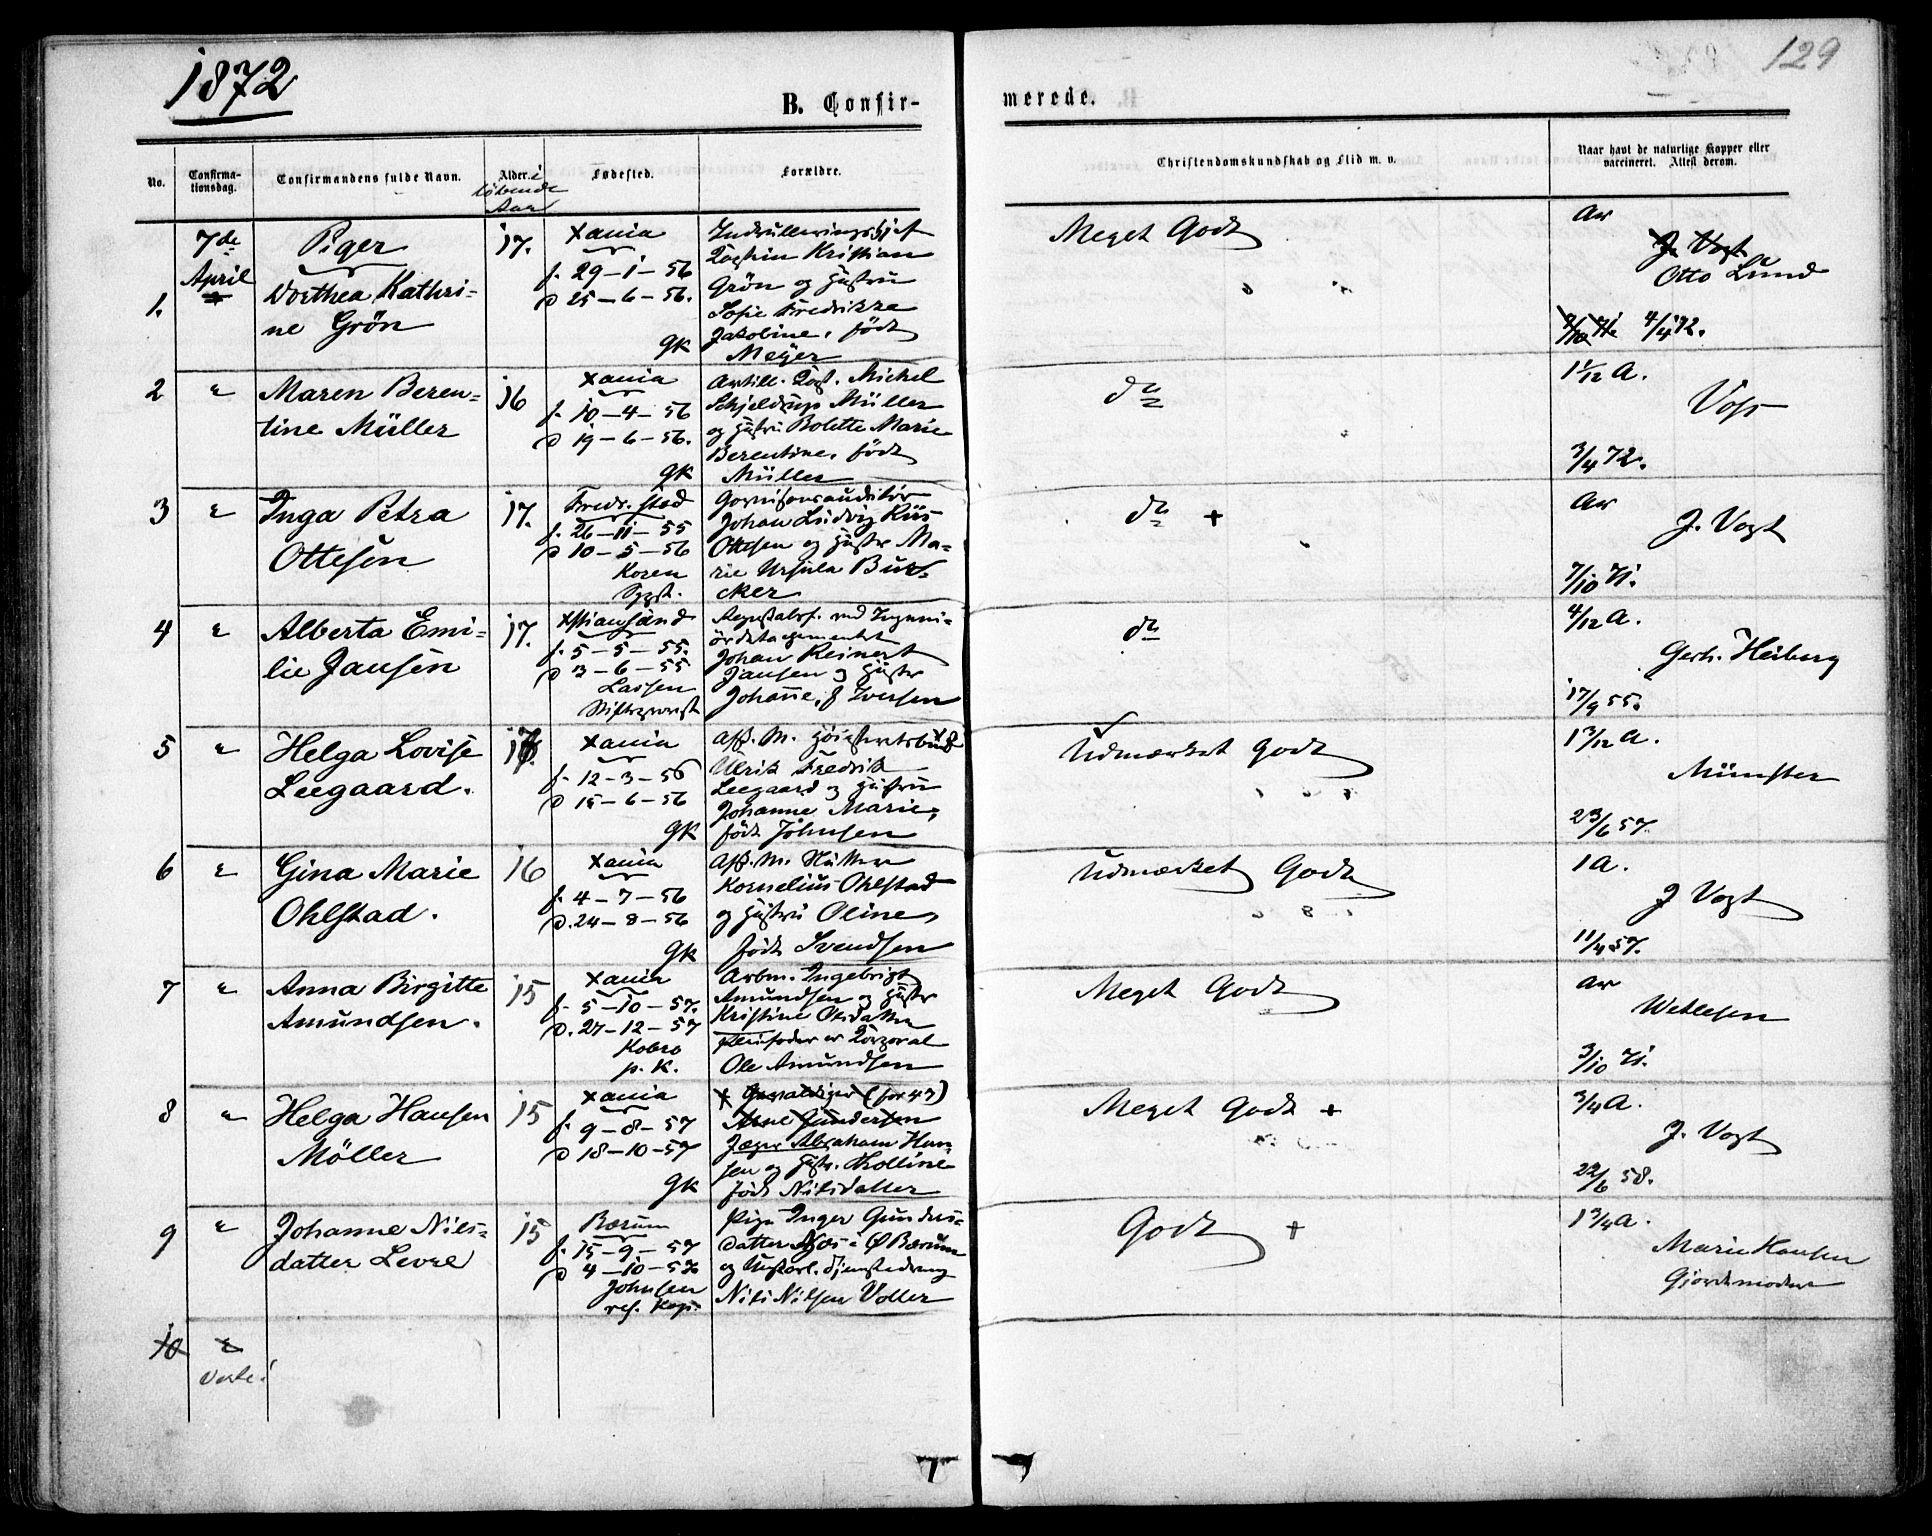 1872
129
B. Confir-
merede.
No.
Confirma-
tionsdag.
Confirmandens fulde Navn.
Alder. i
løbende
Aar
Fødested.
Forældre.
Christendomskundskab og Flid m. v.
Naar havt de naturlige Kopper eller
vaccineret. Attest derom.
7de
April
Piger
1.
Dorthea Kathri-
ne Grön
17.
Xania
f. 29-1-56
D 25-6-56.
GK
Kristian
Grön og Hustru
Sofie Fredrikke
Jakobine, født
Meyer
Meget Godt
Ar
J. Vogt
Otto Lund
4/4 72.
2
"
Maren Beren-
tine Müller
16
Xania
f. 10-4-56
D 19-6-56.
GK
Artill. Kapt. Michel
Schjeldrup Müller
og Hustru Bolette Marie
Berentine, født
Müller
do
1 1/12 A.
Voss
3/4 72.
3
"
Inga Petra
Ottesen
17.
Fredr.stad
f. 26-11-55
D 10-5-56
Koren
Sogpr.
Garnisonsauditør
Johan Ludvig
Ottesen og Hustru Ma-
rie Ursula
cker
do +
Ar
J. Vogt
7/10 71.
4
"
Alberta Emi-
lie Jansen
17.
Xstiansand
f. 5-5-55.
D 3-6-55
Lassen
Stiftsprovst
Johan Reinert
Jansen og Hustru
Johanne, f Iversen
do
4/12 A.
Gerh. Heiberg
17/9 55.
5
"
Helga Lovise
Leegaard.
Xania
f. 12-3-56
D 15-6-56
GK
Ulrik Fredrik
Leegaard og Hustru
Johanne Marie,
født Johnsen
Udmærket Godt
1 3/12 A.
Münster
23/6 57.
6
"
Gina Marie
Ohlstad.
16
Xania
f. 4-7-56
D. 24-8-56
GK
Kornelius Ohlstad
og Hustru Oline,
født Svendsen
Udmærket Godt
1 A.
J Vogt
11/4 57.
7
"
Anna Birgitte
Amundsen.
15
Xania
f. 5-10-57.
D. 27-12-57
Kobro
p. K.
Arbm. Ingebrigt
Amundsen og Hustru
Kristine Olsdatter
Pleiefader er Korporal
Ole Amundsen
Meget Godt
Ar
Wetlesen
3/10 71.
8
"
Helga Hansen
Möller
15
Xania
f. 9-8-57
D 18-10-57
GK
(for 47)
Arne Gundersen
Jæger Abraham Han-
sen og Hustr.
født Nilsdatter
Meget Godt +
3/4 A.
J. Vogt
22/6 58.
9
"
Johanne Nils-
datter Levre
15
Bærum
f. 15-9-57
D 4-10-57
Johnsen
res. Kap.
Pige Inger Gunders-
datter Næs i Ø Bærum
og Ungkarl. Tjenestedreng
Nils Nilsen Voller
Godt +
1 3/4 A.
Marie Hansen
Gjordemoder
10
"